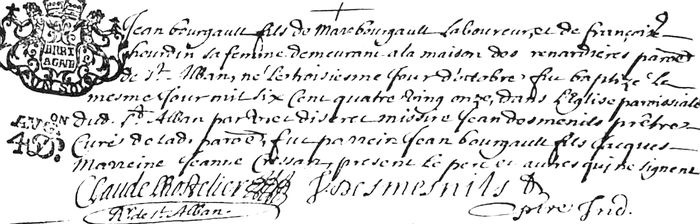 BRET
AGNE
UN SOL
AUG.ON
4 D.
Jean bourgault fils de Marc bourgault Laboureur, et de françoise
houdin sa femme demeurant a la maison des renardières paroisse
de St. Alban, né Le troisiesme Jour d'octobre, fut baptizé Le
mesme Jour mil six Cent quatre vingt onze, dans L'Eglise parroissiale
dud. St. Alban par Vnet discret missire Jean desmenils prêtre
Curé de lad. paroisse, fut parrein Jean bourgault fils Jacques
Marreine Jeanne present Le pere et autres qui ne signent
Claude
V. Desmesnils
Rr. de St Alban.
ptre